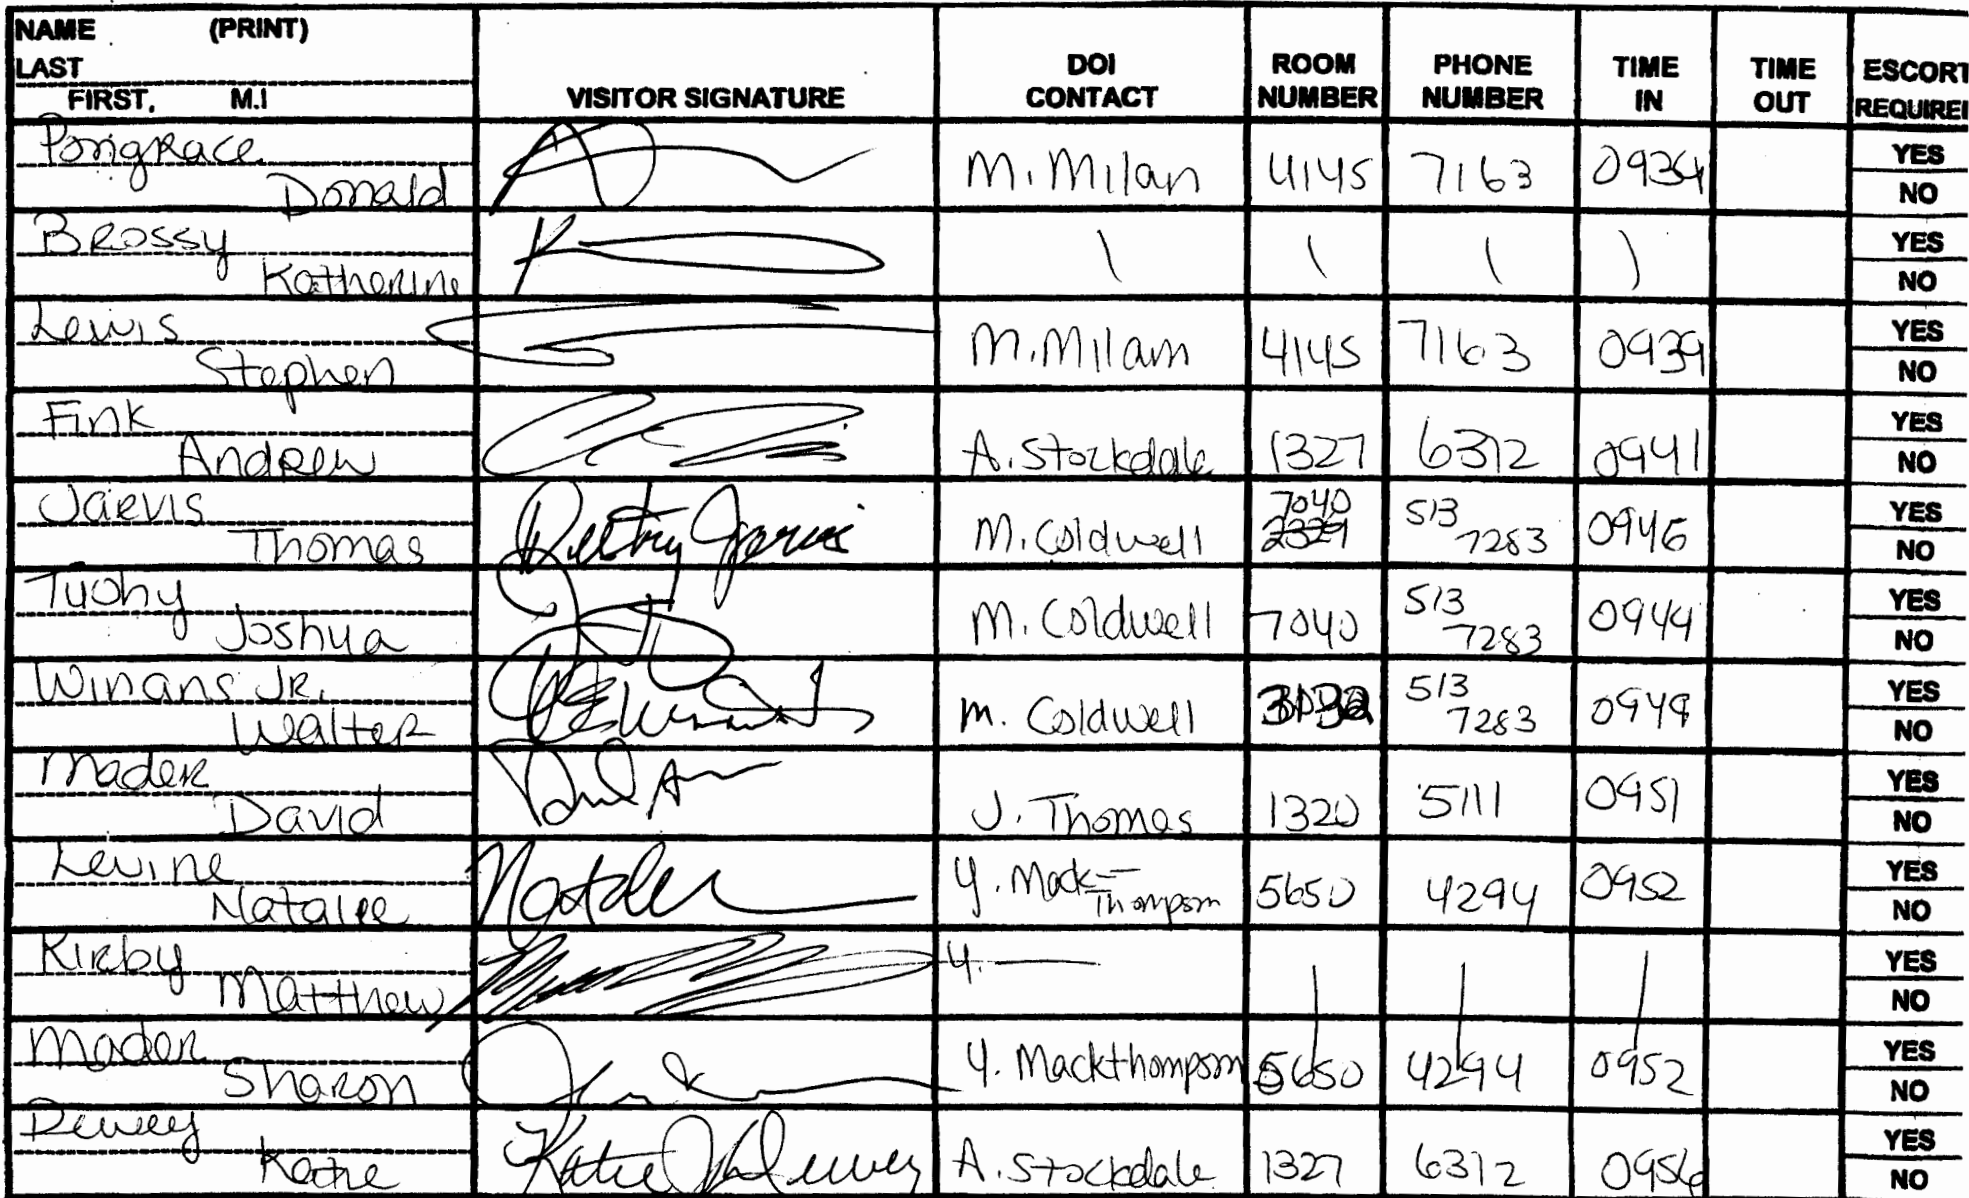 NAME (PRINT)
LAST
FIRST, M.I
VISITOR SIGNATURE
DOI CONTACT
ROOM NUMBER
PHONE NUMBER
TIME IN
TIME OUT
ESCORT REQUIRE
Pongrace
Donald
M. Milan 4145 7163 0934
YES
NO
Brossy
Katherine
YES
NO
Lewis
Stephen
M. Milam 4145 7163 0939
YES
NO
Fink
Andrew
A. Stockdale 1327 6312 0941
YES
NO
Jarvis
Thomas
M. Coldwell 7040 513 7283 0946
YES
NO
Tuohy
Joshua
M. Coldwell 7040 513 7283 0944
YES
NO
Winans JR.
Walter
M. Coldwell 513 7283 0949
YES
NO
Mader
David
J. Thomas 1320 5111 0951
YES
NO
Levine
Natalie
Y. Mack-Thompson 5650 4294 0952
YES
NO
Kirby
Matthew
Y.
YES
NO
Mader
Sharon
Y. Mackthompson 5650 4294 0952
YES
NO
Dewey
Katie
Katie Dewey
A. Stockdale 1327 6312 0956
YES
NO